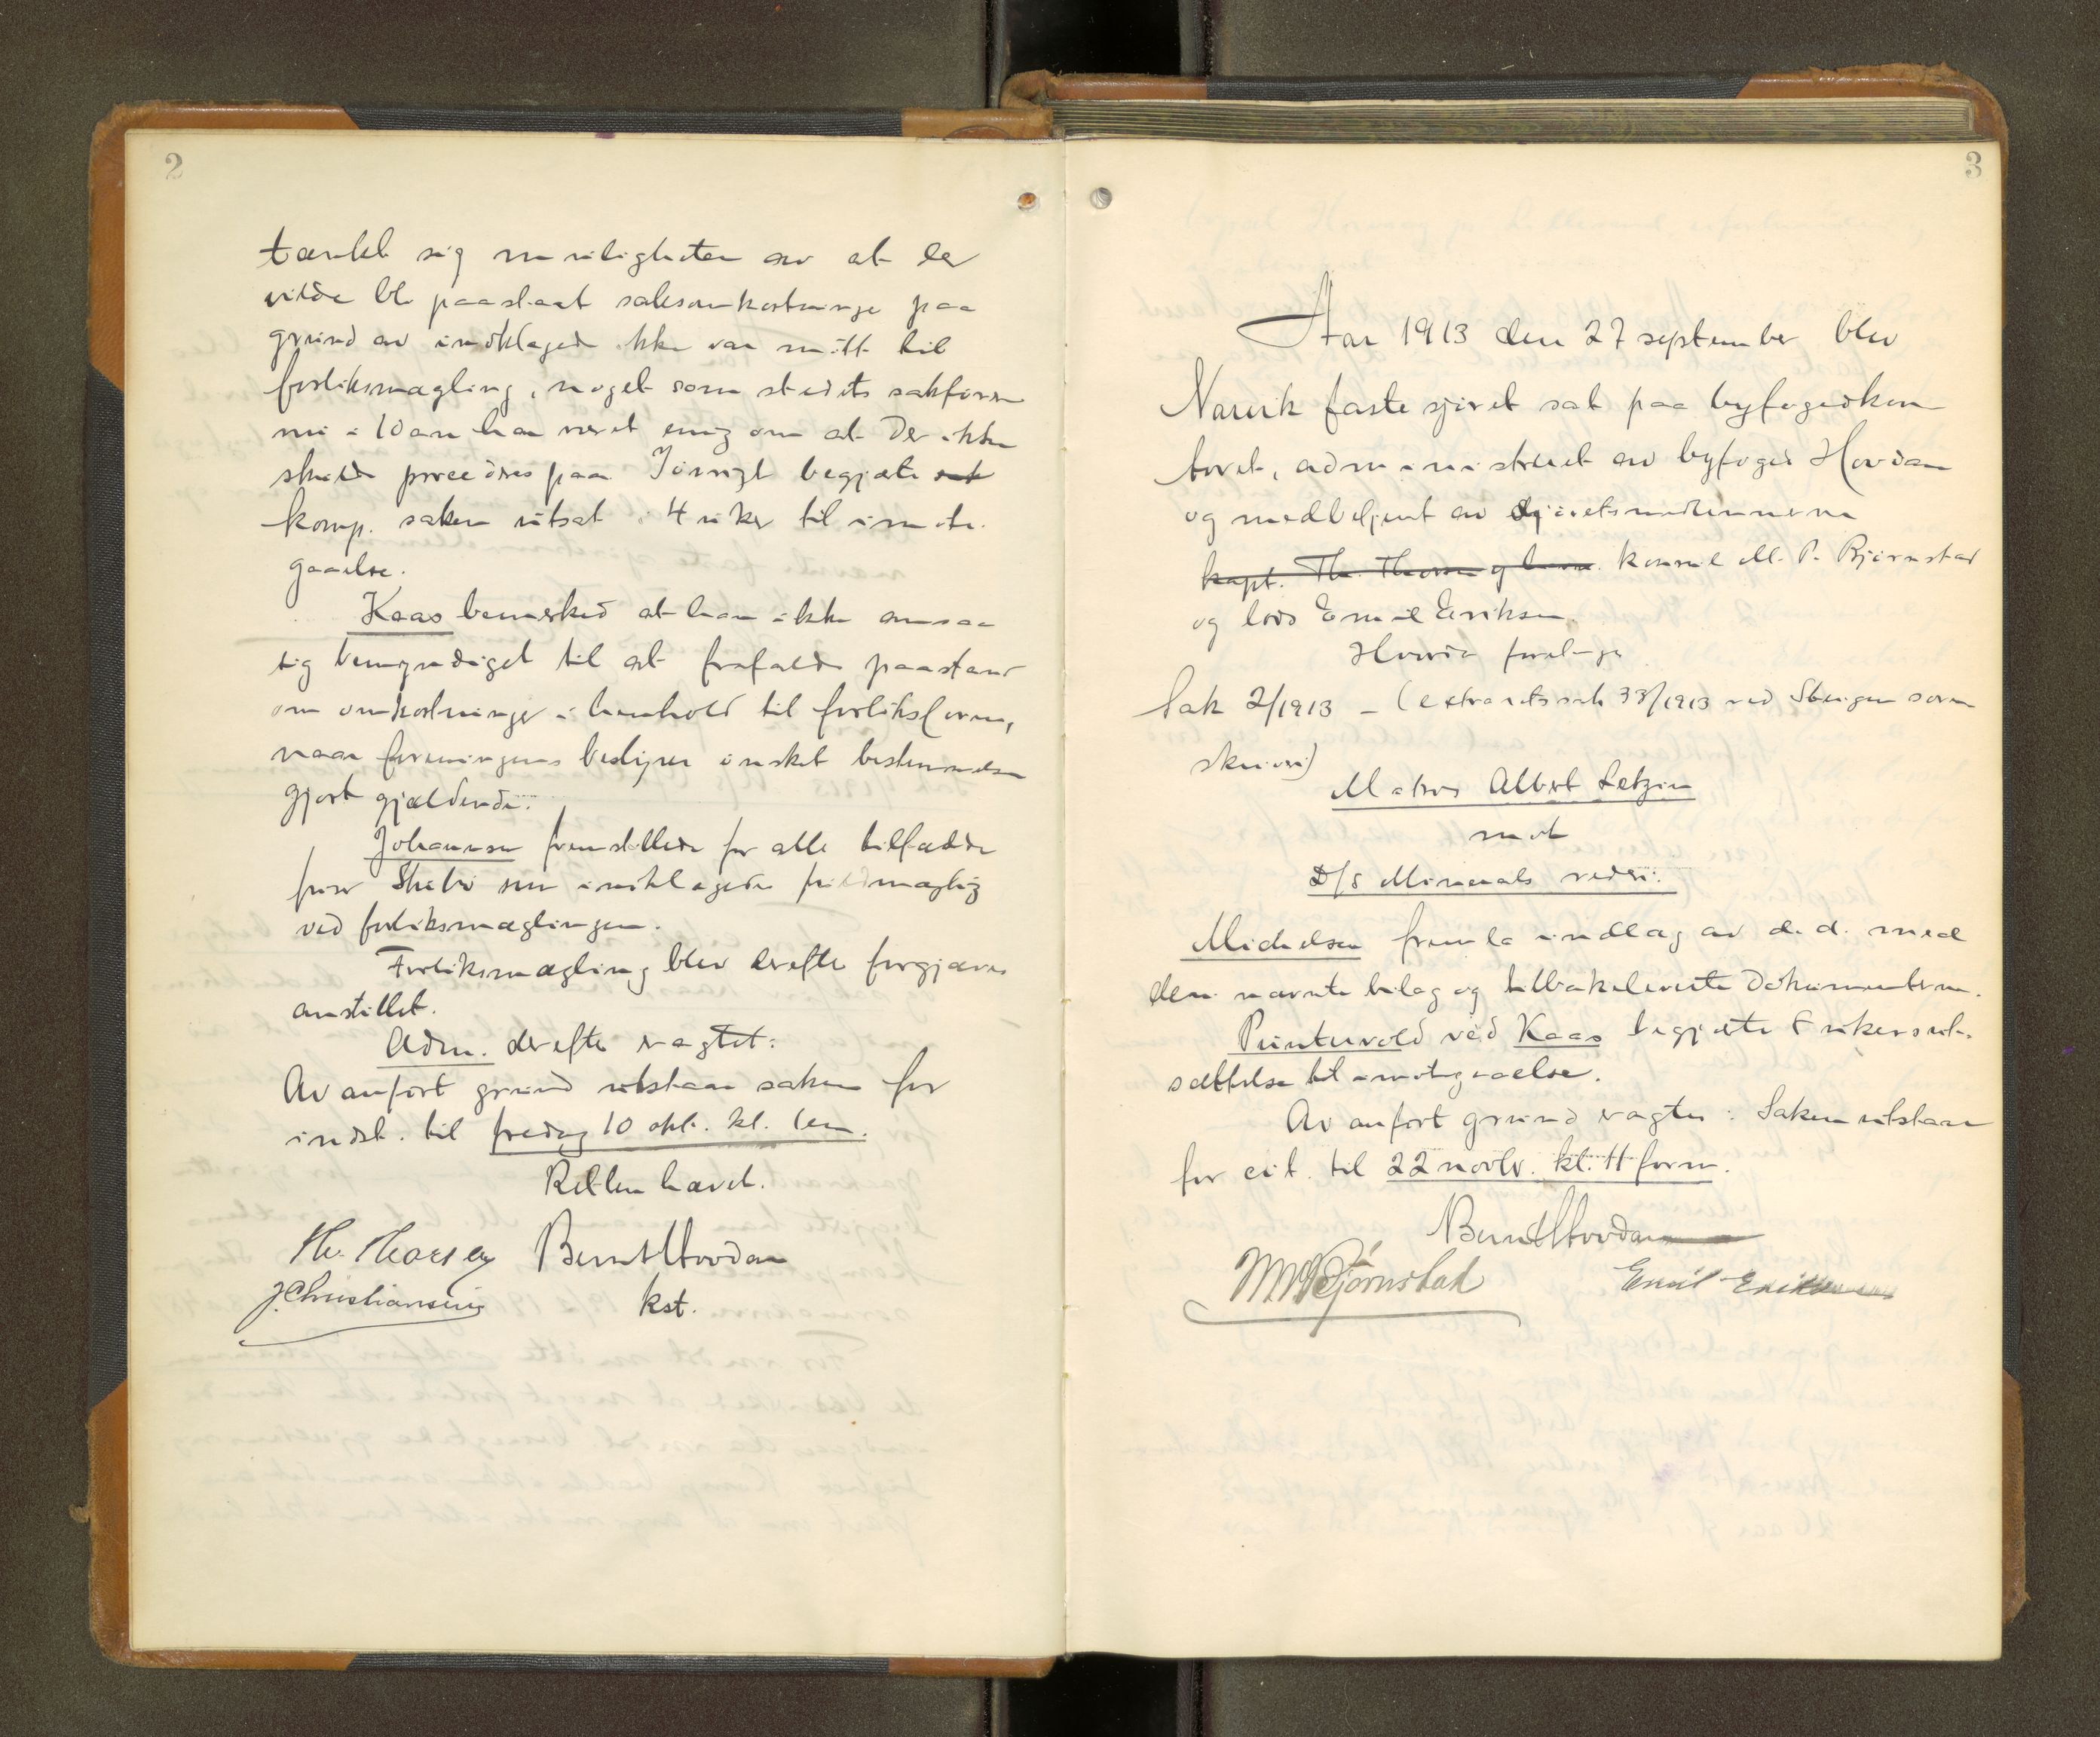 2
tænkt sig muligheten av at der
vilde bli paastaat saksomkostninger paa
grund av indklagede ikke var møtt til
forliksmægling, noget som stedets sakførere
nu i 10 aar har været enig om at der ikke
skulde procederes paa. Iøvrigt begjærte
komp. saken utsat i 4 uker til imøte-
gaaelse.
Kaas bemerked at han ikke ansaa
sig bemyndiget til at frafalde paastand
om omkostninger i henhold til forliksloven,
naar foreningens bestyrer ønsket bestemmelsen
gjort gjældende.
Johannsen fremstillede for alle tilfælde
som indklagedes fuldmægtig
ved forliksmæglingen.
Forliksmægling blev derefter forgjæves
anstillet.
Adm. derefter eragtet:
Av anført grund utstaar saken for
indst. til fredag 10 okt. kl. 1 em.
Retten hævet.
Th. Thorsen Bernt Hovdan
J. Christiansen kst.
3
Aar 1913 den 27 september blev
Narvik faste sjøret sat paa byfogedkon
toret, administreret av byfoged Hovdan
og medbetjent av sjøretsmedlemmerne
kapt. Th. Thorsen og konsul M. P. Bjørnstad
og lods Emil Eriksen.
Hvorda foretages
Sak 2/1913 - (extraretssak 33/1913 ved Steigen soren
skriveri)
Matros Albert Letzin
mot
D/S Minerals rederi.
Michelsen fremla indlæg av d.d. med
deri nævnte bilag og tilbakeleverte dokumenterne.
Printervold ved Kaas begjærte 8 ukers ut-
sættelse til imøtegaaelse.
Av anført grund eragtes: Saken utstaar
for cit. til 22 novbr. kl. 11 form.
Bernt Hovdan
M P Bjørnstad Emil Eriksen